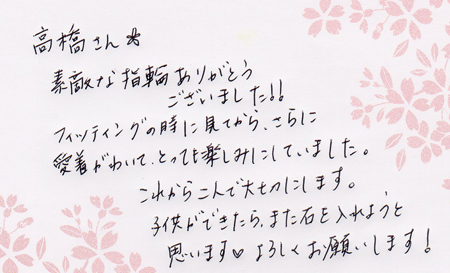 高橋さん☆
素敵な指輪ありがとう
ございました!!
フィッティングの時に見てから、さらに
愛着がわいて、とっても楽しみにしていました。
これから二人で大切にします。
子供ができたら、また石を入れようと
思います♥ よろしくお願いします!